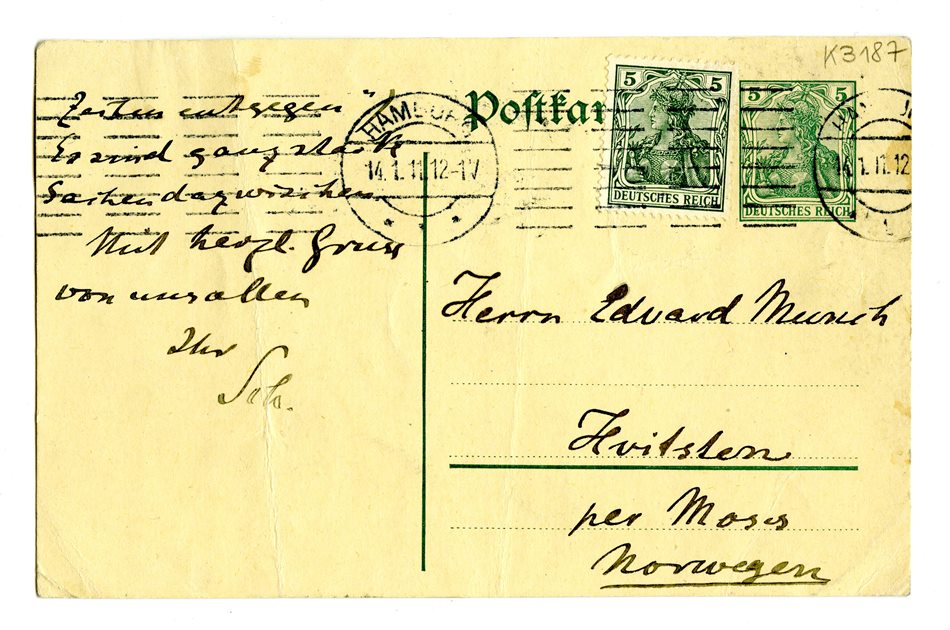 K3187
Zeiten entgegen"!
Es sind ganz starke
Sachen dazwischen
Mit herzl. Gruss
von uns allen
Ihr
Sch.
HAMBURG
14.1.11.12-1V
Postkar
5 5
DEUTSCHES REICH
5 5
DEUTSCHES REICH
14.1.11.12
Herrn Edvard Munch
Hvitsten
per Moss
Norwegen